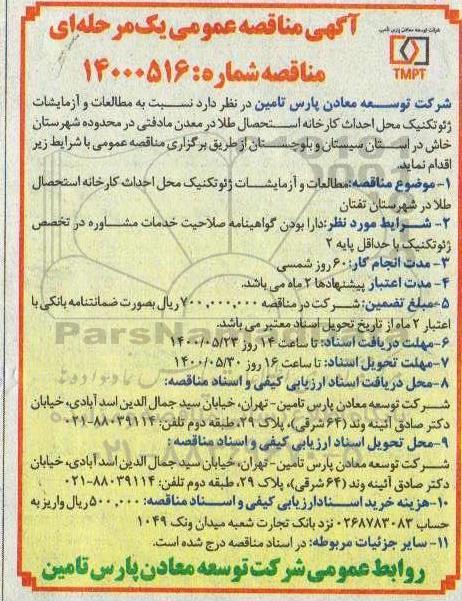 آگهی مناقصه عمومی یک مرحله‌ای
مناقصه شماره: ۱۴۰۰۰۵۱۶
شرکت توسعه معادن پارس تامین
TMPT
شرکت توسعه معادن پارس تامین در نظر دارد نسبت به مطالعات و آزمایشات
ژئوتکنیک محل احداث کارخانه استحصال طلا در معدن مادفتی در محدوده شهرستان
خاش در استان سیستان و بلوچستان از طریق برگزاری مناقصه عمومی با شرایط زیر
اقدام نماید.
۱-موضوع مناقصه: مطالعات و آزمایشات ژئوتکنیک محل احداث کارخانه استحصال
طلا در شهرستان تفتان
۲- شرایط مورد نظر: دارا بودن گواهینامه صلاحیت خدمات مشاوره در تخصص
ژئوتکنیک با حداقل پایه ۲
۳- مدت انجام کار: ۶۰ روز شمسی
۴- مدت اعتبار پیشنهادها ۲ ماه می باشد.
۵-مبلغ تضمین: شرکت در مناقصه ۷۰۰,۰۰۰,۰۰۰ ریال بصورت ضمانتنامه بانکی با
اعتبار ۲ ماه از تاریخ تحویل اسناد معتبر می باشد.
۶-مهلت دریافت اسناد: تا ساعت ۱۴ روز ۱۴۰۰/۰۵/۲۳
۷-مهلت تحویل اسناد: تا ساعت ۱۶ روز ۱۴۰۰/۰۵/۳۰
۸-محل دریافت اسناد ارزیابی کیفی و اسناد مناقصه:
شرکت توسعه معادن پارس تامین- تهران، خیابان سید جمال الدین اسد آبادی، خیابان
دکتر صادق آئینه وند (۶۴ شرقی)، پلاک ۲۹، طبقه دوم تلفن: ۸۸۰۳۹۱۱۴-۰۲۱
۹-محل تحویل اسناد ارزیابی کیفی و اسناد مناقصه :
شرکت توسعه معادن پارس تامین- تهران، خیابان سید جمال الدین اسد آبادی، خیابان
دکتر صادق آئینه وند (۶۴ شرقی)، پلاک ۲۹، طبقه دوم تلفن: ۸۸۰۳۹۱۱۴-۰۲۱
۱۰-هزینه خرید اسناد ارزیابی کیفی و اسناد مناقصه: ۵۰۰,۰۰۰ ریال واریز به
حساب ۰۲۶۸۷۸۳۰۸۳ نزد بانک تجارت شعبه میدان ونک ۱۰۴۹
۱۱- سایر جزئیات مربوطه: در اسناد مناقصه درج شده است.
روابط عمومی شرکت توسعه معادن پارس تامین